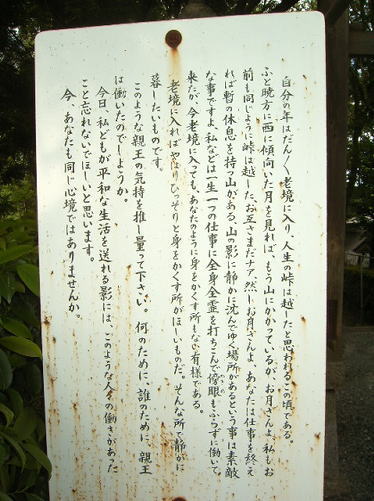 自分の年はだん〳〵老境に入り、人生の峠は越したと思われるこの頃である。
ふと暁方に西に傾向いた月を見れば、もう山にかかっているが、お月さんよ、私もお
前も同じように峠は越した、お互さまだナア、然しお月さんよ、あなたは仕事を終え
れば暫の休息を持つ山がある、山の影に静かに沈んでゆく場所があるという事は素敵
な事ですよ、私などは一生一つの仕事に全身全霊を打ちこんで傍眼もふらずに働いて
来たが、今老境に入っても、あなたのように身をかくす所もない有様である。
老境に入ればやはりひっそりと身をかくす所がほしいものだ。そんな所で静かに
暮したいものです。
このような親王の気持を推し量って下さい。何のために、誰のために、親王
は働いたのでしようか。
今日、私どもが平和な生活を送れる影には、このような人々の働きがあった
こと忘れないでほしいと思います。
今、あなたも同じ心境ではありませんか。